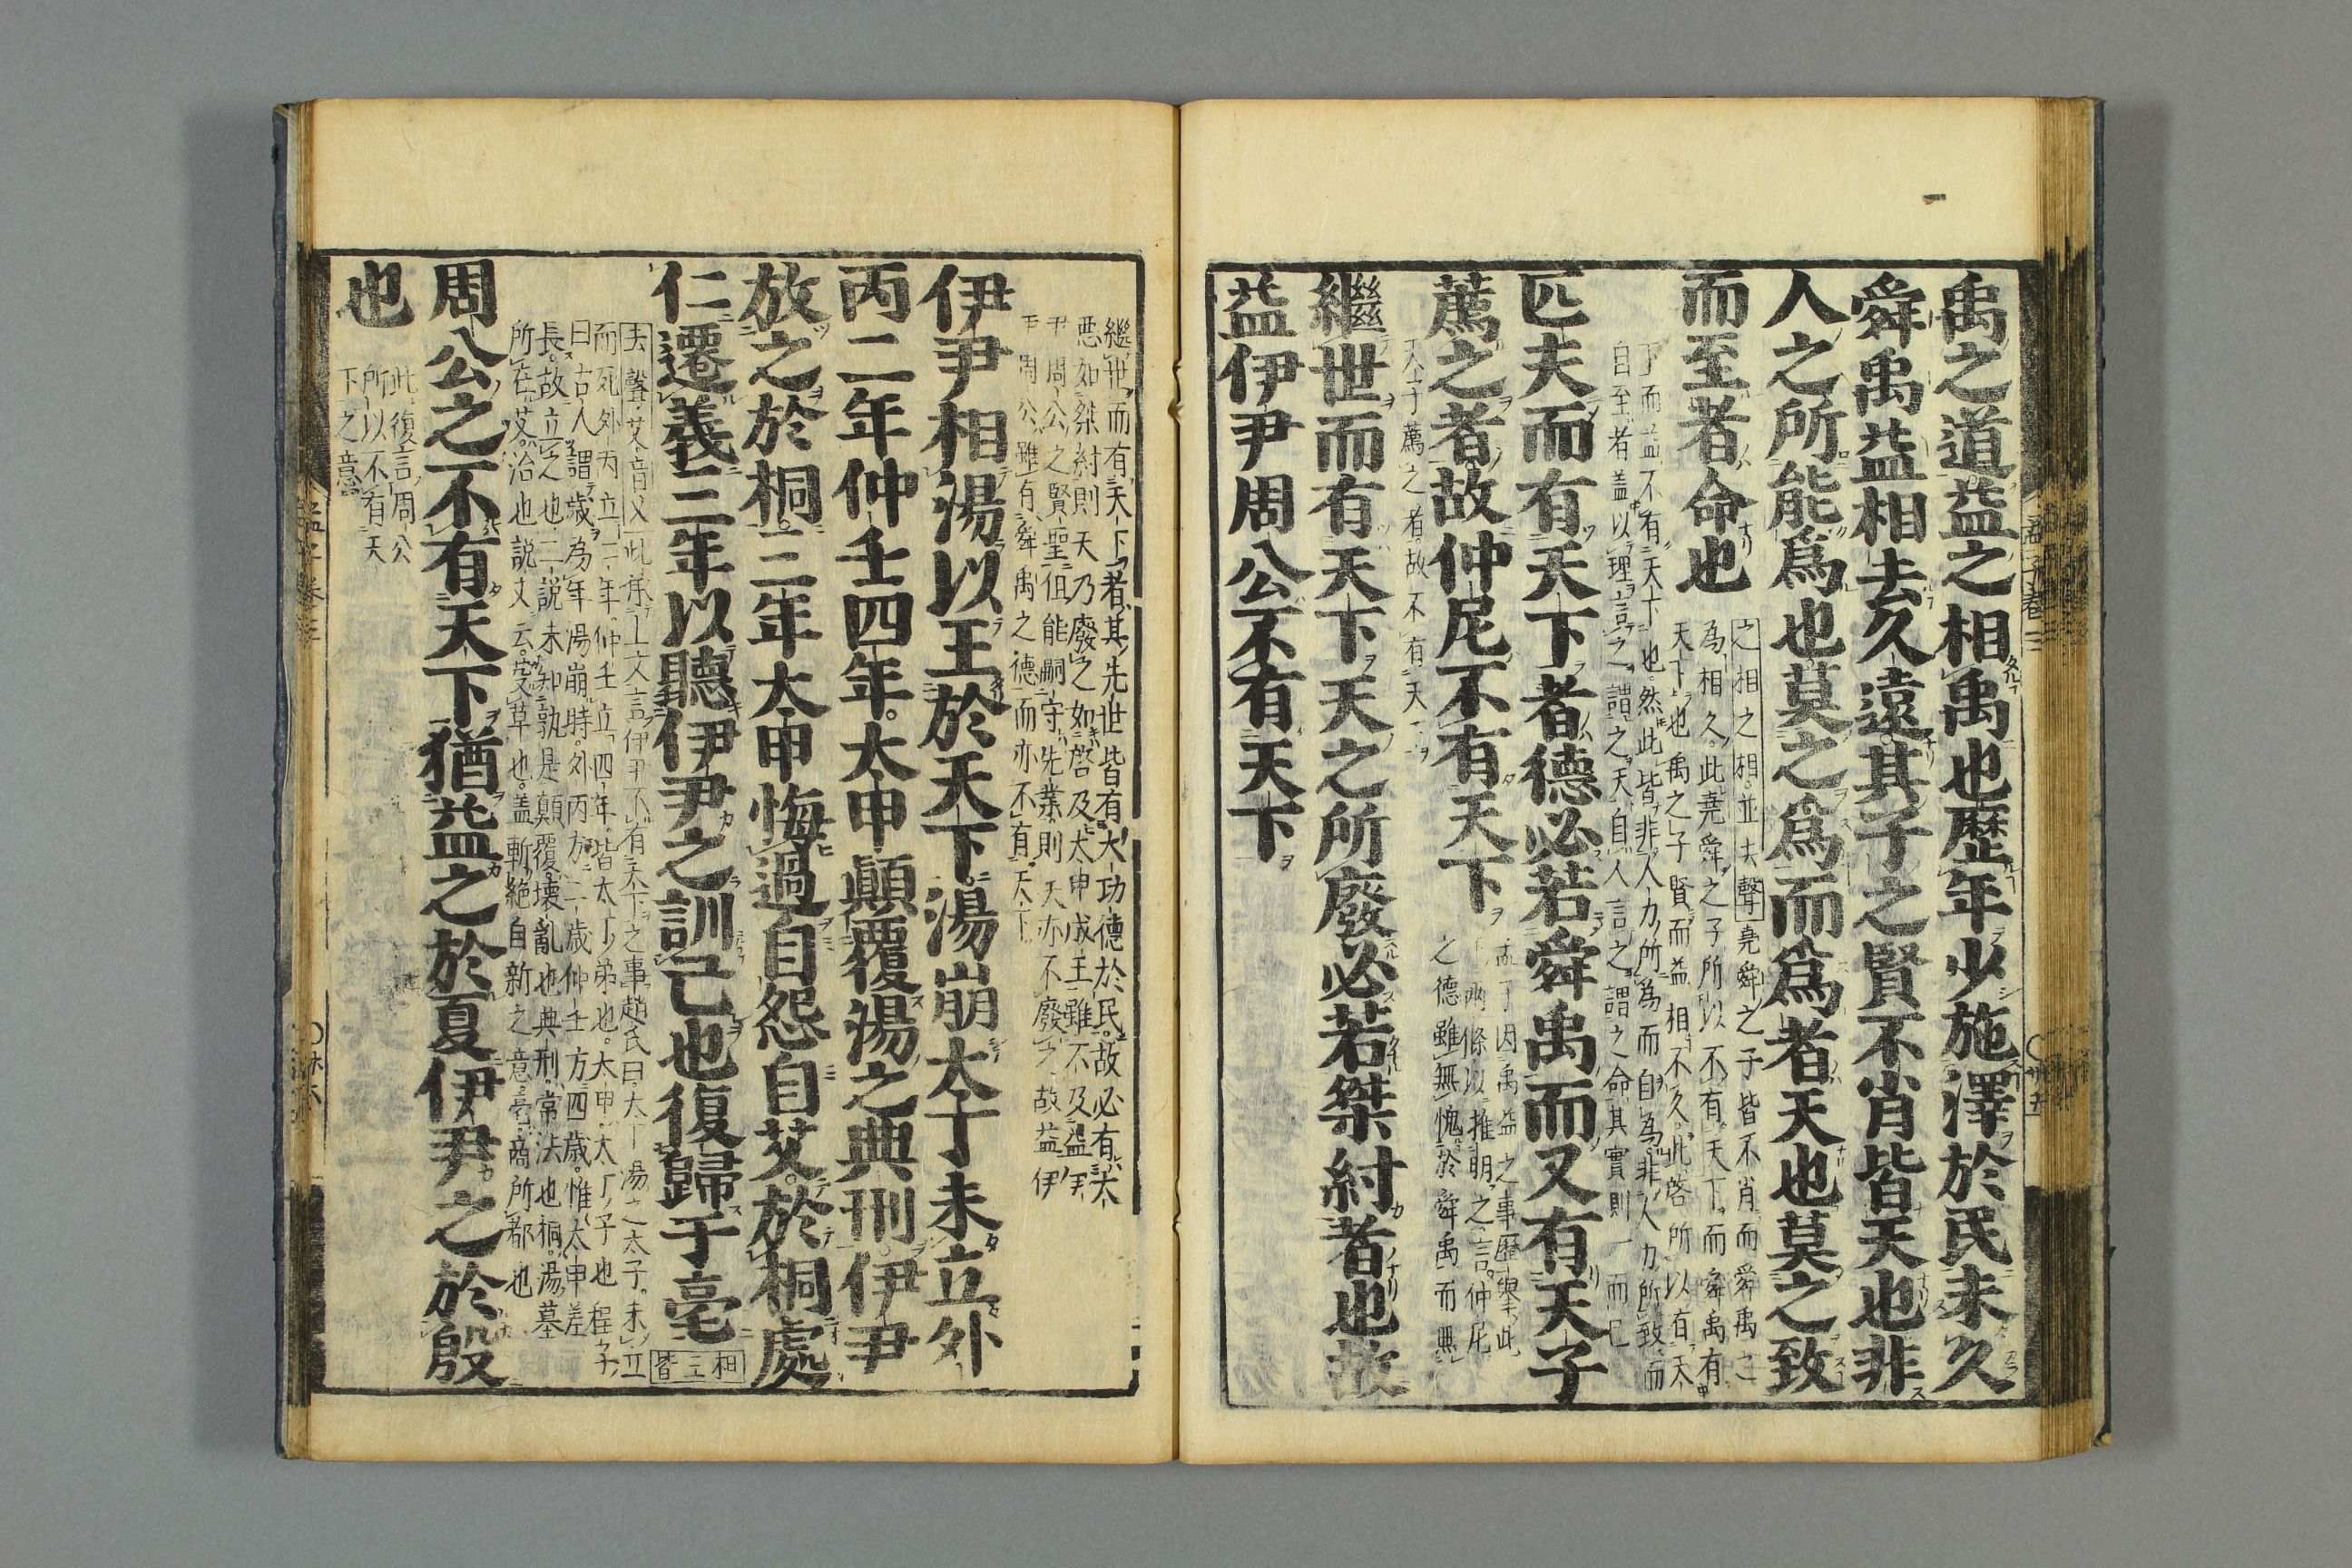 禹之道益之相禹也歴年少施澤於民未久
舜禹益相去久遠其子之賢不肖皆天也非
人之所能爲也莫之爲而爲者天也莫之致
而至者命也
之相之相並去聲堯舜之子皆不肖而舜禹之
爲相久此堯舜之子所以不有天下而舜禹有
天下也禹之子賢而益相不久此啓所以有天
下而益不有天下也然此皆非人力所爲而自爲非人力所致而
自至者蓋以理言之謂之天自人言之謂之命其實則一而已
匹夫而有天下者德必若舜禹而又有天子
薦之者故仲尼不有天下
孟子因禹益之事歴舉此
兩條以推明之言仲尼
之德雖無愧於舜禹而無
天子薦之者故不有天下
繼世而有天下天之所廢必若桀紂者也故
益伊尹周公不有天下
繼世而有天下者其先世皆有大功德於民故必有大
惡如桀紂則天乃廢之如啓及太申成王雖不及益伊
尹周公之賢聖但能嗣守先業則天亦不廢之故益伊
尹周公雖有舜禹之德而亦不有天下
伊尹相湯以王於天下湯崩太丁未立外
丙二年仲壬四年太甲顛覆湯之典刑伊尹
放之於桐三年太甲悔過自怨自艾於桐處
仁遷義三年以聽伊尹之訓己也復歸于亳
相王皆
去聲艾音乂此承上文言伊尹不有天下之事趙氏曰太丁湯之太子未立
而死外丙立二年仲壬立四年皆太丁弟也太甲太丁子也程子
曰古人謂歳爲年湯崩時外丙方二歳仲壬方四歳惟太甲差
長故立之也二説未知孰是顛覆壊亂也典刑常法也桐湯墓
所在艾治也説文云芟草也蓋斬絶自新之意亳商所都也
周公之不有天下猶益之於夏伊尹之於殷
也
此復言周公
所以不有天
下之意